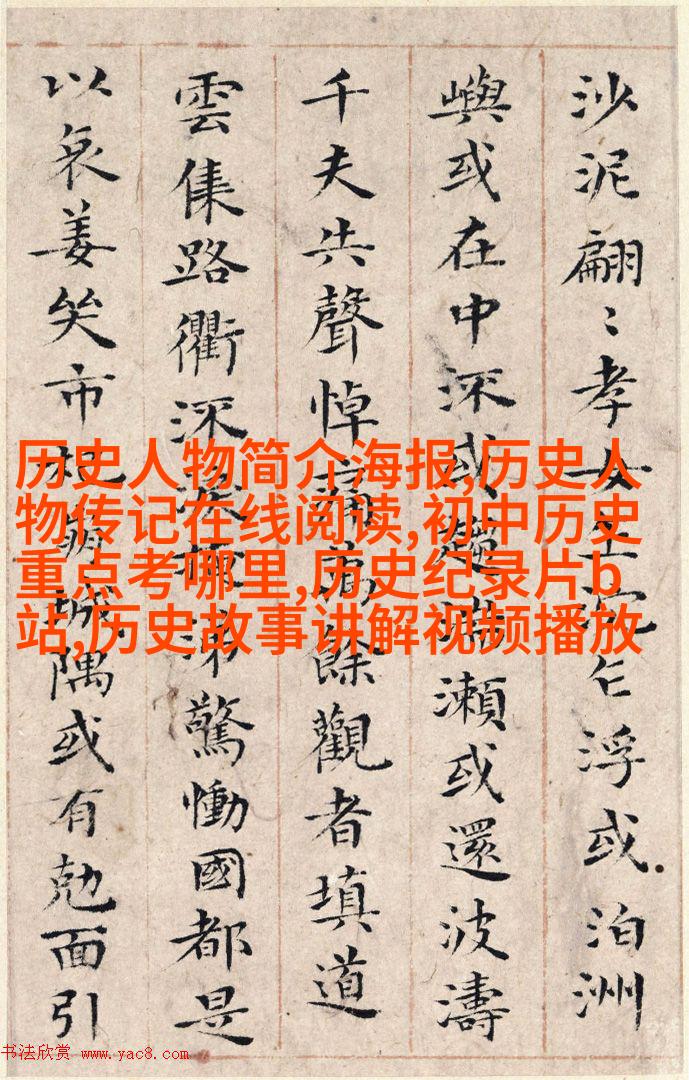 沙泥翩〻孝女乍沉乍浮或泊洲
嶼或在中深或趨湍瀨或還波濤
千夫失聲悼痛萬餘觀者填道
雲集路衢深淚掩涕驚慟國都是
以哀姜哭市杞崩城隅或有勉面引
历史人物简介海报,历史人
物传记在线阅读,初中历史
重点考哪里,历史纪录片b
站,历史故事讲解视频播放
书法欣赏 www.yac8.com